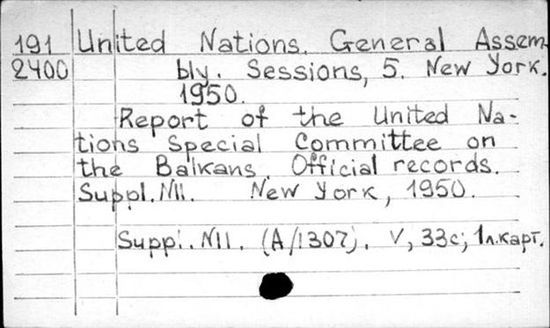 191 United Nations. General Assem-
2400 bly. Sessions, 5. New York.
1950.
Report of the United Na-
tions Special Committee on
the Balkans. Official records.
Suppl. N11. New York, 1950.
Suppl. N11. (A/1307). V, 33c; 1л.карт.